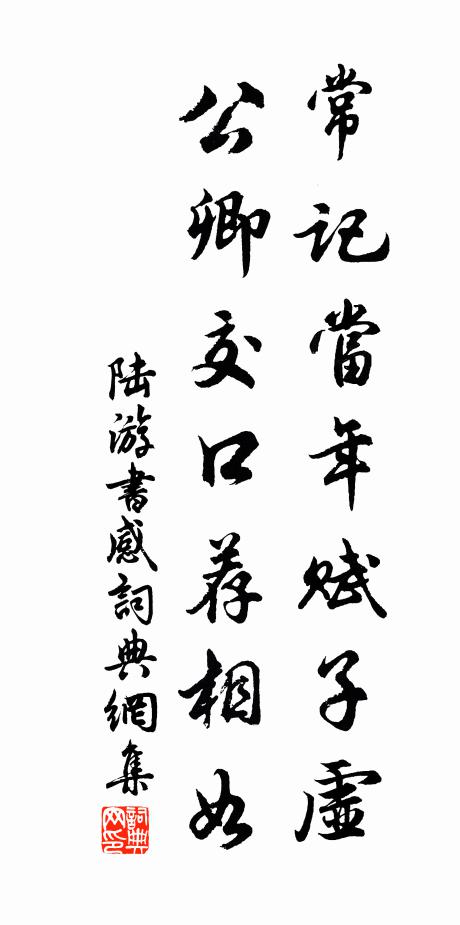 常記當年赋子虛
公卿交口荐相如
陆游書感詞典網集
詞典网印